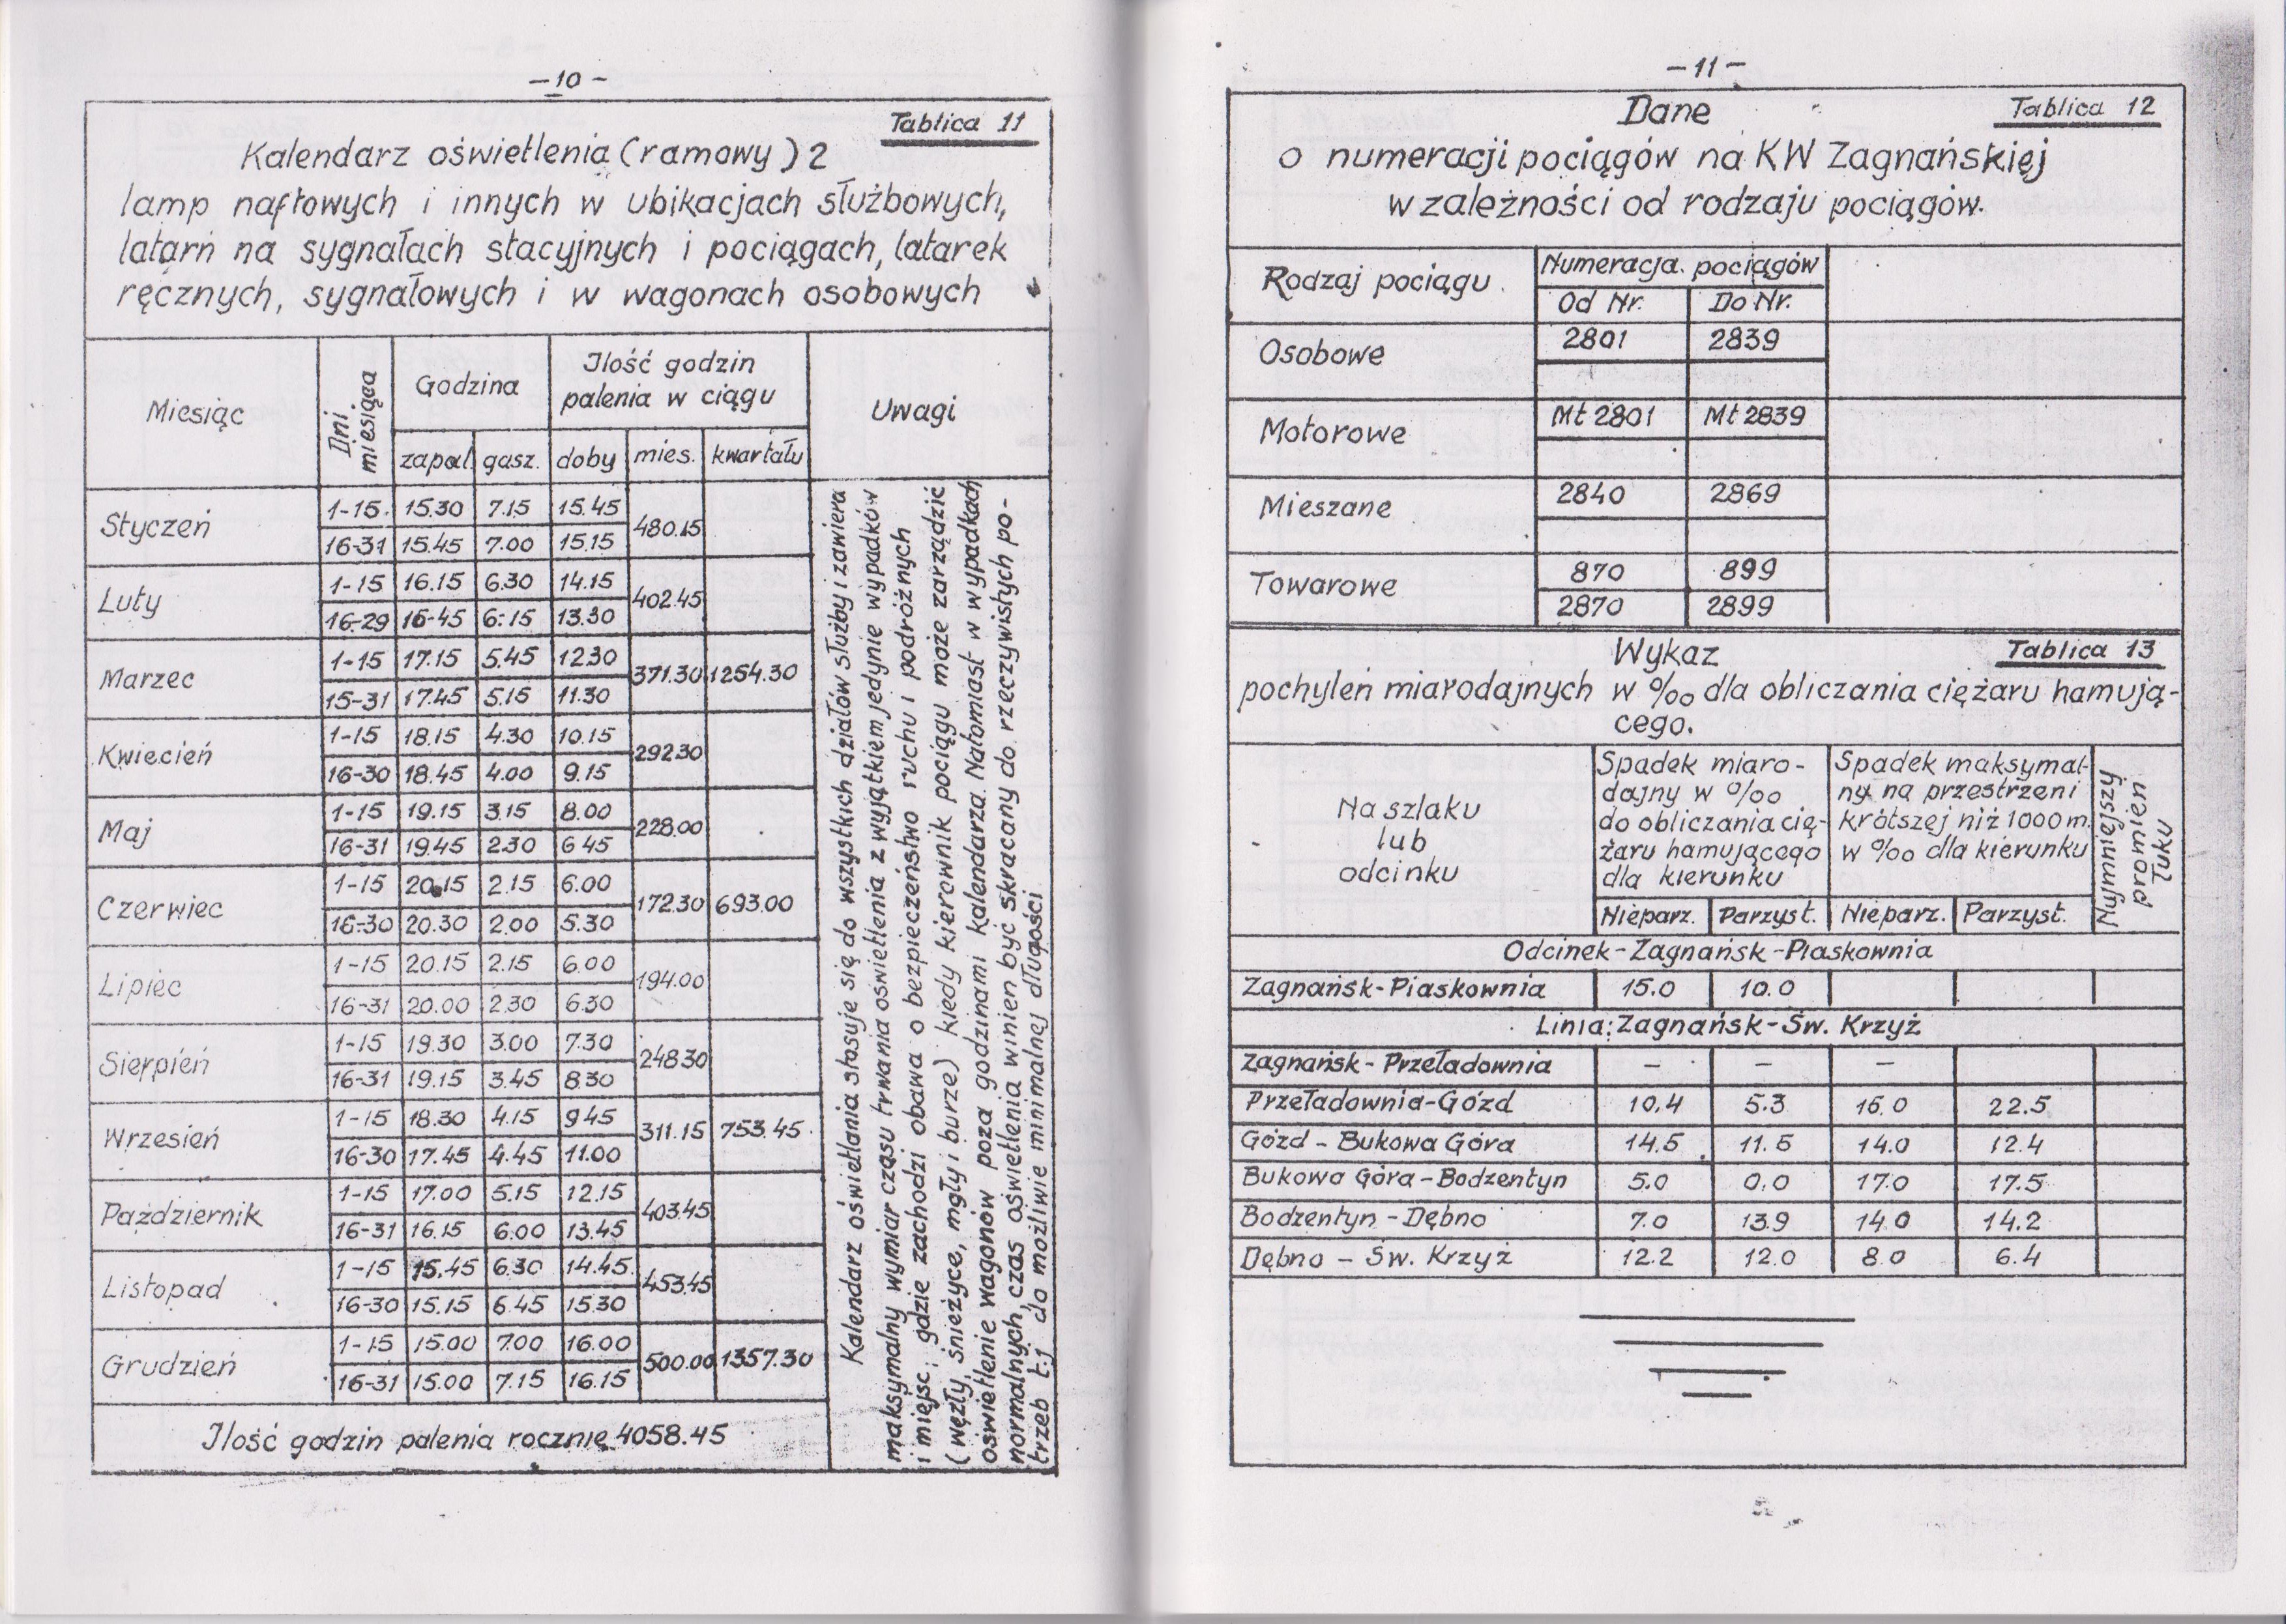 -10-
Tablica 11
Kalendarz oświetlenia (ramowy) 2
lamp naftowych i innych w ubikacjach służbowych,
latarń na sygnałach stacyjnych i pociągach, latarek
ręcznych, sygnałowych i w wagonach osobowych
Miesiąc | Dni miesiąca | Godzina | Ilość godzin palenia w ciągu | Uwagi
zapal. | gasz. | doby | mies. | kwartału
Styczeń | 1-15 | 15.30 | 7.15 | 15.45 | 480.15
16-31 | 15.45 | 7.00 | 15.15
Luty | 1-15 | 16.15 | 6.30 | 14.15 | 402.45
16-29 | 16-45 | 6:15 | 13.30
Marzec | 1-15 | 17.15 | 5.45 | 12.30 | 371.30 | 1254.30
15-31 | 17.45 | 5.15 | 11.30
Kwiecień | 1-15 | 18.15 | 4.30 | 10.15 | 292.30
16-30 | 18.45 | 4.00 | 9.15
Maj | 1-15 | 19.15 | 3.15 | 8.00 | 228.00
16-31 | 19.45 | 2.30 | 6 45
Czerwiec | 1-15 | 20.15 | 2.15 | 6.00 | 172.30 | 693.00
16-30 | 20.30 | 2.00 | 5.30
Lipiec | 1-15 | 20.15 | 2.15 | 6.00 | 194.00
16-31 | 20.00 | 2.30 | 6.30
Sierpień | 1-15 | 19.30 | 3.00 | 7.30 | 248.30
16-31 | 19.15 | 3.45 | 8.30
Wrzesień | 1-15 | 18.30 | 4.15 | 9.45 | 311.15 | 753.45
16-30 | 17.45 | 4.45 | 11.00
Październik | 1-15 | 17.00 | 5.15 | 12.15 | 403.45
16-31 | 16.15 | 6.00 | 13.45
Listopad | 1-15 | 15.45 | 6.30 | 14.45 | 453.45
16-30 | 15.15 | 6.45 | 15.30
Grudzień | 1-15 | 15.00 | 7.00 | 16.00 | 500.00 | 1357.30
16-31 | 15.00 | 7.15 | 16.15
Ilość godzin palenia rocznie 4058.45
Kalendarz oświetlania stosuje się do wszystkich działów służby i zawiera
maksymalny wymiar czasu trwania oświetlenia z wyjątkiem jedynie wypadków
i miejsc; gdzie zachodzi obawa o bezpieczeństwo ruchu i podróżnych
(węzły, śnieżyce, mgły i burze) kiedy kierownik pociągu może zarządzić
oświetlenie wagonów poza godzinami kalendarza. Natomiast w wypadkach
normalnych, czas oświetlenia winien być skracany do rzeczywistych po-
trzeb t.j do możliwie minimalnej długości
-11-
Dane
Tablica 12
o numeracji pociągów na KW Zagnańskiej
w zależności od rodzaju pociągów.
Rodzaj pociągu | Numeracja pociągów
Od Nr. | Do Nr.
Osobowe | 2801 | 2839
Motorowe | Mt 2801 | Mt 2839
Mieszane | 2840 | 2869
Towarowe | 870 | 899
2870 | 2899
Wykaz
Tablica 13
pochyleń miarodajnych w ‰ dla obliczania ciężaru hamują-
cego.
Na szlaku
lub
odcinku
Spadek miaro-
dajny w ‰
do obliczania cię-
żaru hamującego
dla kierunku
Spadek maksymal-
ny na przestrzeni
krótszej niż 1000 m.
w ‰ dla kierunku
Najmniejszy
promień
łuku
Nieparz. | Parzyst. | Nieparz. | Parzyst.
Odcinek-Zagnańsk-Piaskownia
Zagnańsk-Piaskownia | 15.0 | 10.0
Linia: Zagnańsk-Św. Krzyż
Zagnańsk-Przeładownia | – | – | –
Przeładownia-Gózd | 10.4 | 5.3 | 16.0 | 22.5
Gózd - Bukowa Góra | 14.5 | 11.5 | 14.0 | 12.4
Bukowa Góra-Bodzentyn | 5.0 | 0.0 | 17.0 | 17.5
Bodzentyn - Dębno | 7.0 | 13.9 | 14.0 | 14.2
Dębno - Św. Krzyż | 12.2 | 12.0 | 8.0 | 6.4